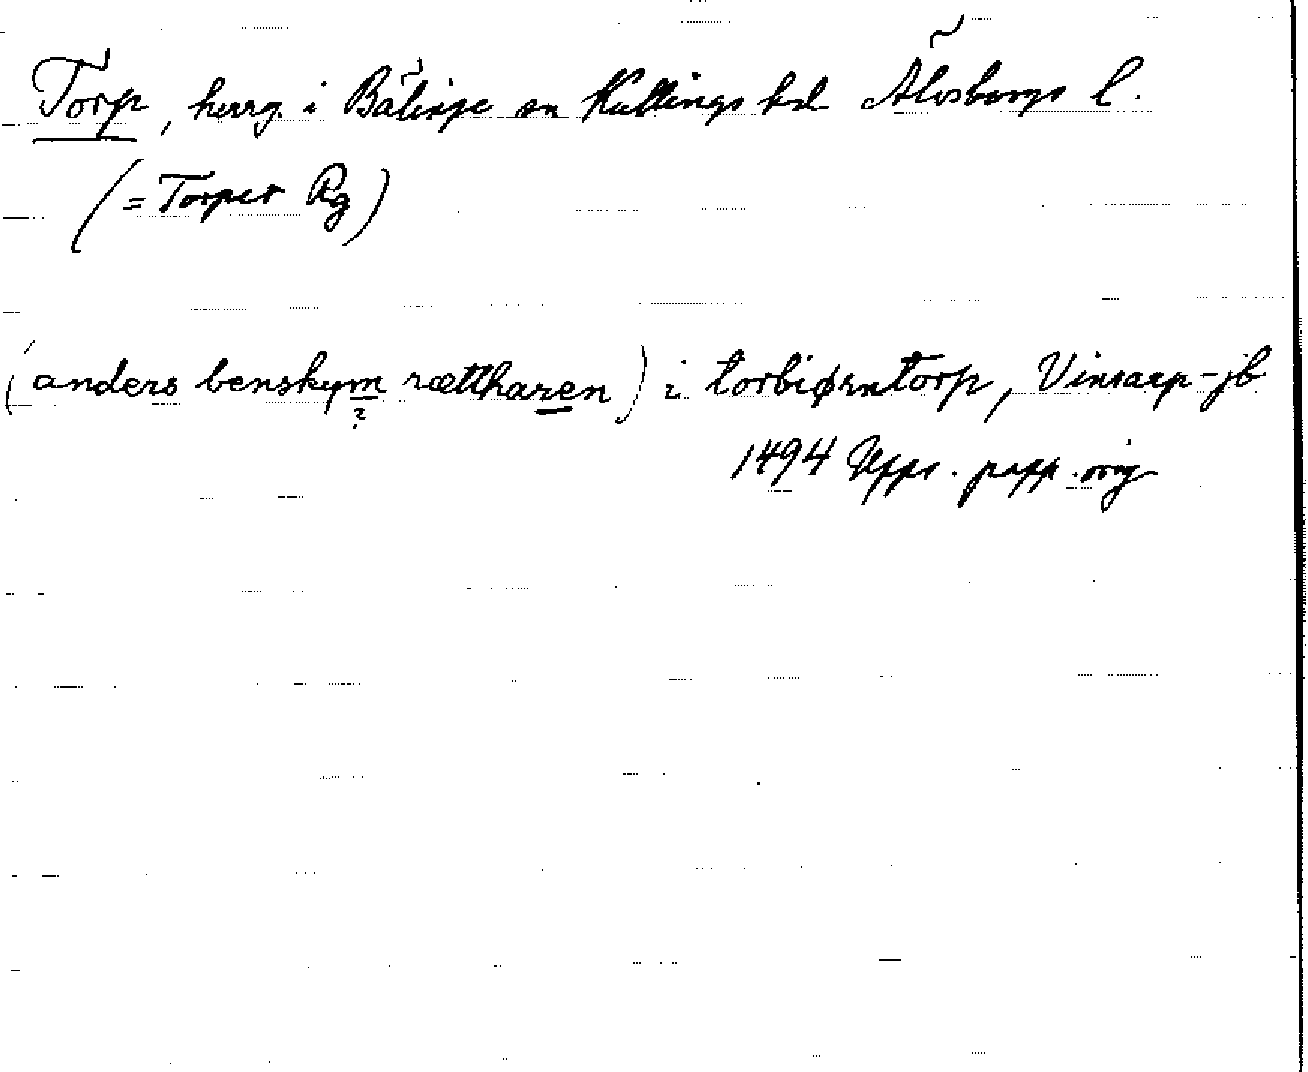 Torp, herrg. i Bälinge sn Kullings hd Älvsborgs l.
(= Torpet Rg)
(anders benskym rættharen) i torbiørntorp, Vinsarp-jb
?
1494 Upps. papp. orig